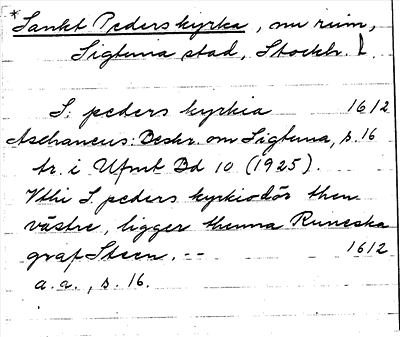 *Sankt Peders kyrka, nu ruin,
Sigtuna stad, Stockh. l.
S: peders kyrkia 1612
Aschaneus: Beskr. om Sigtuna, s. 16
tr. i Ufmt Bd 10 (1925).
Vthi S. peders kyrkiodör then
västre, ligger thenna Runeska
graf Steen. -- 1612
a. a., s. 16.